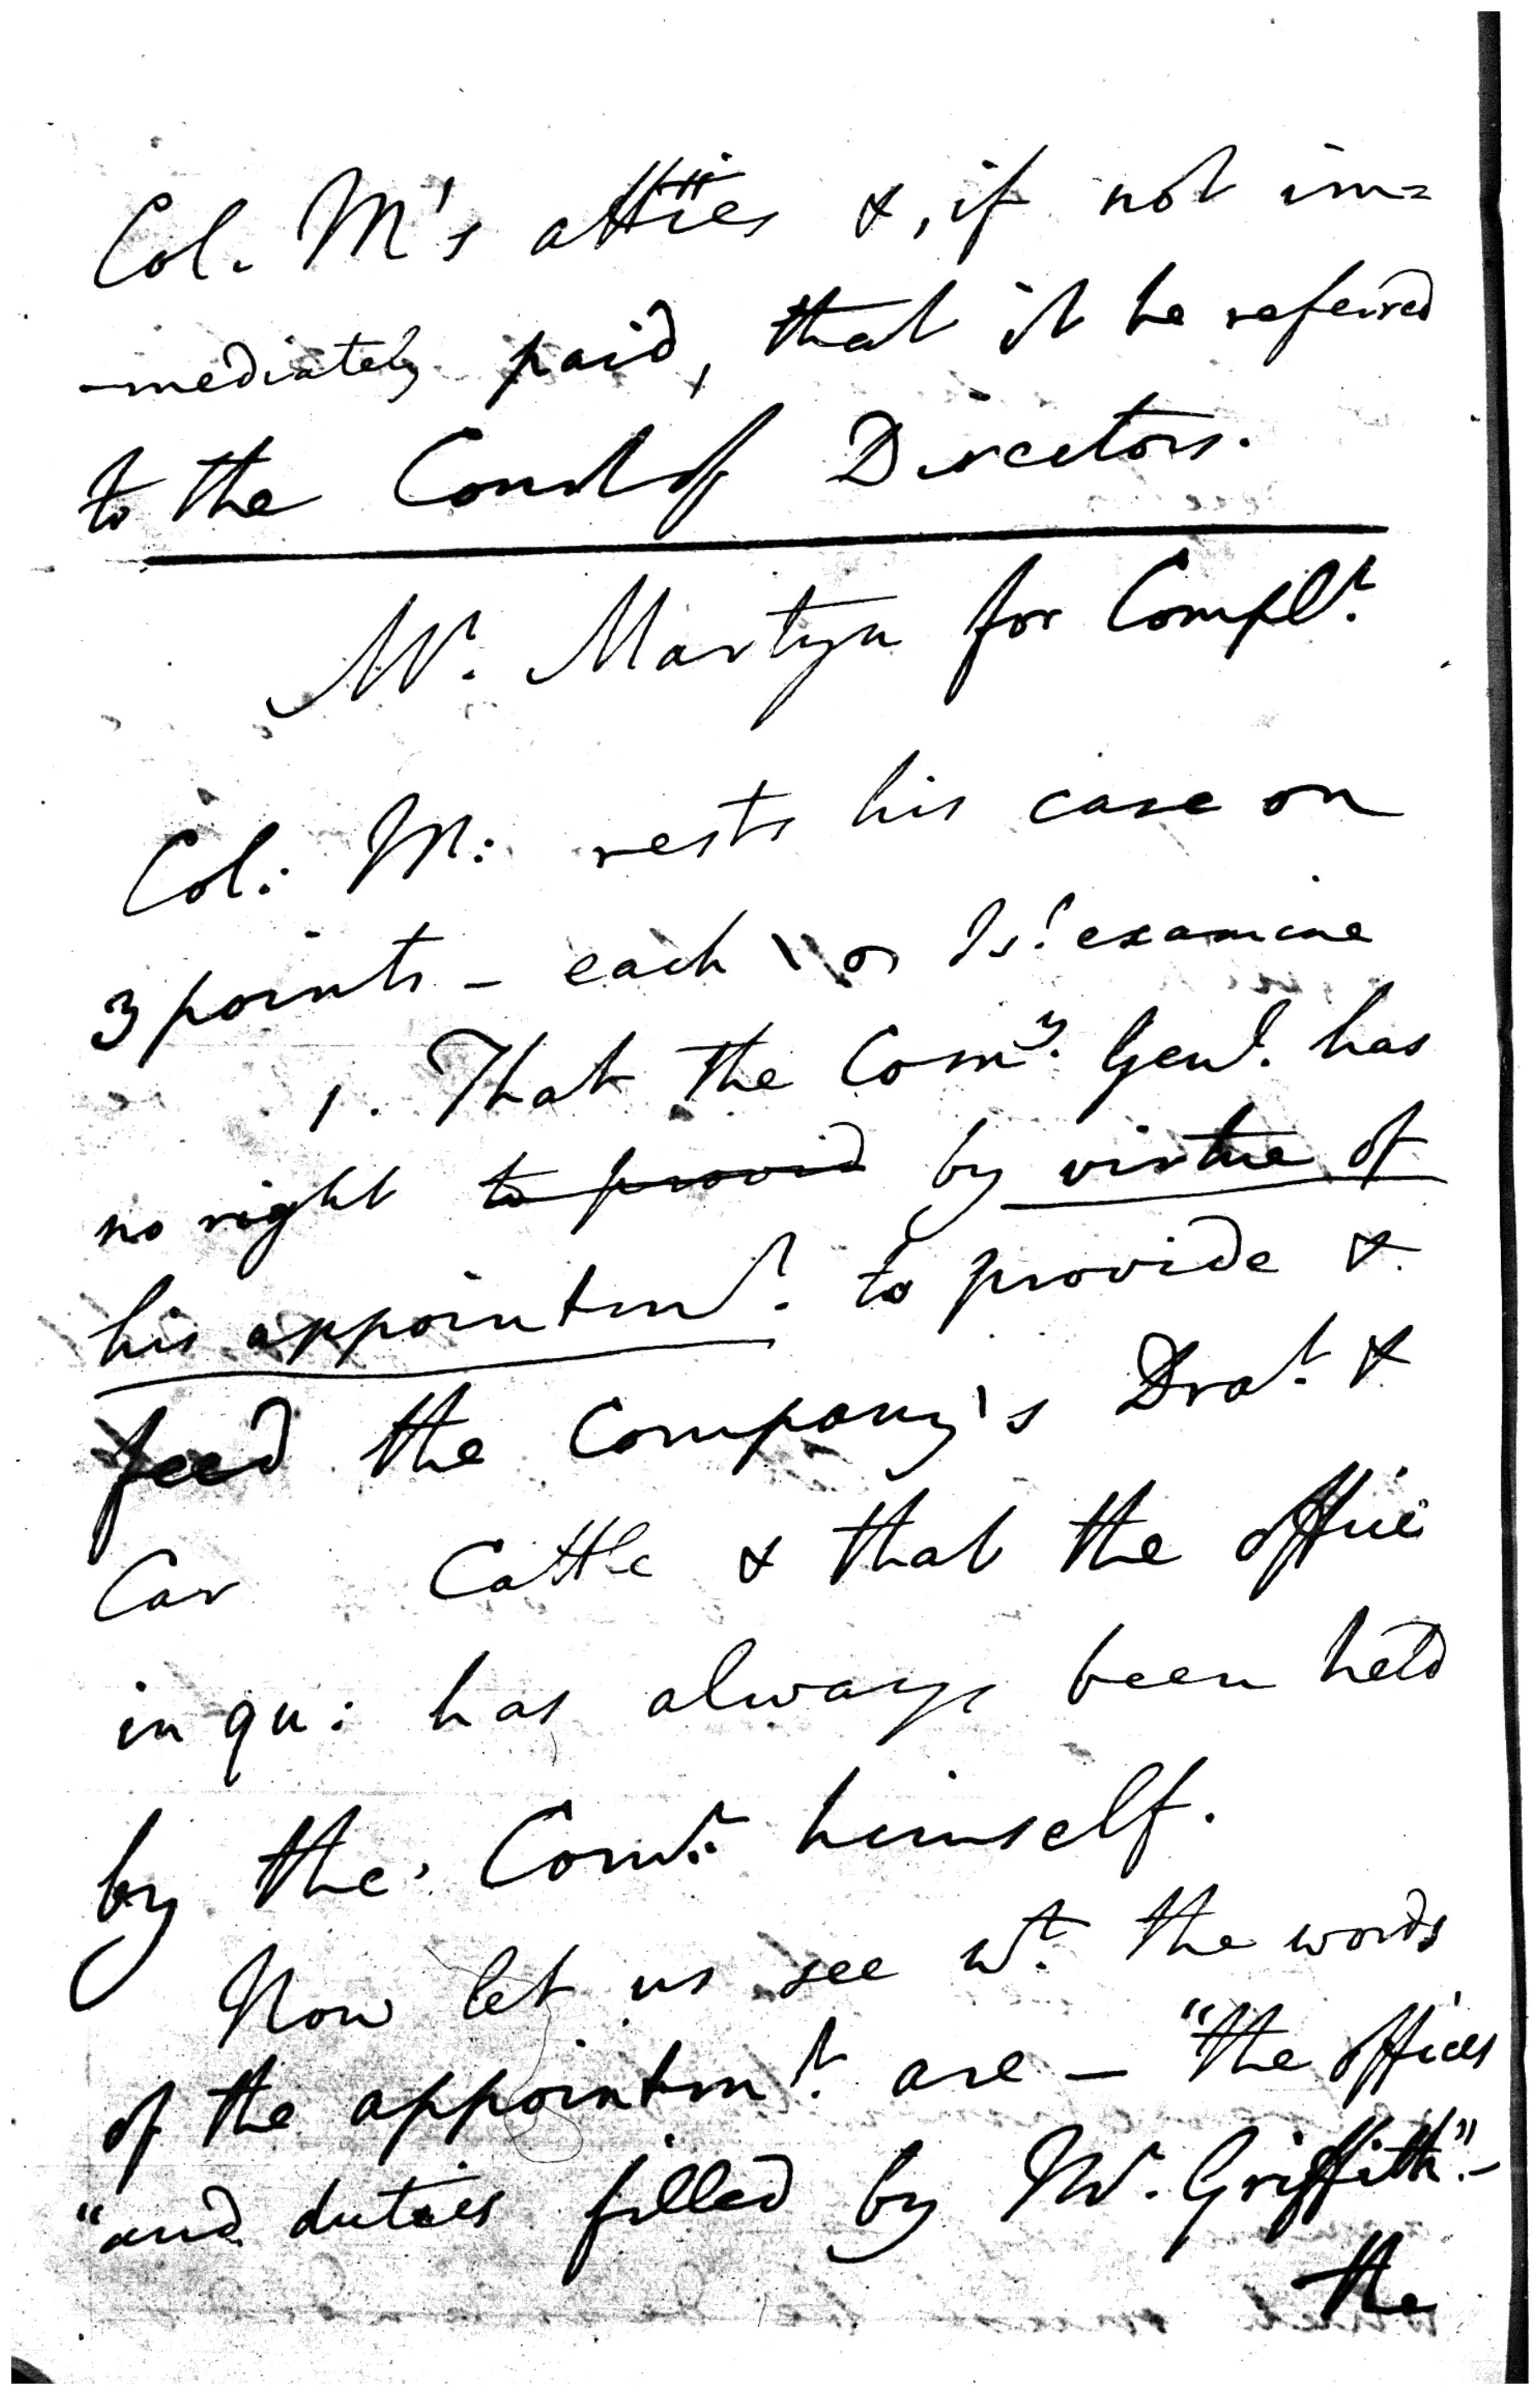 Col. M's atties &, if not im=
-mediately paid, that it be referred
to the Court of Directors.
Mr. Martyn for Complt.
Col: M: rests his case on
3 points - each of I sl. examine
1. That the Comy. Genl. has
no right to provid by virtue of
his appointmt. to provide &
feed the Company's Drat. &
Car Cattle & that the office
in qu: has always been held
by the Comt. himself.
Now let us see wt. the words
of the appointmt. are - "the offices
"and duties filled by Mr. Griffith" -
the